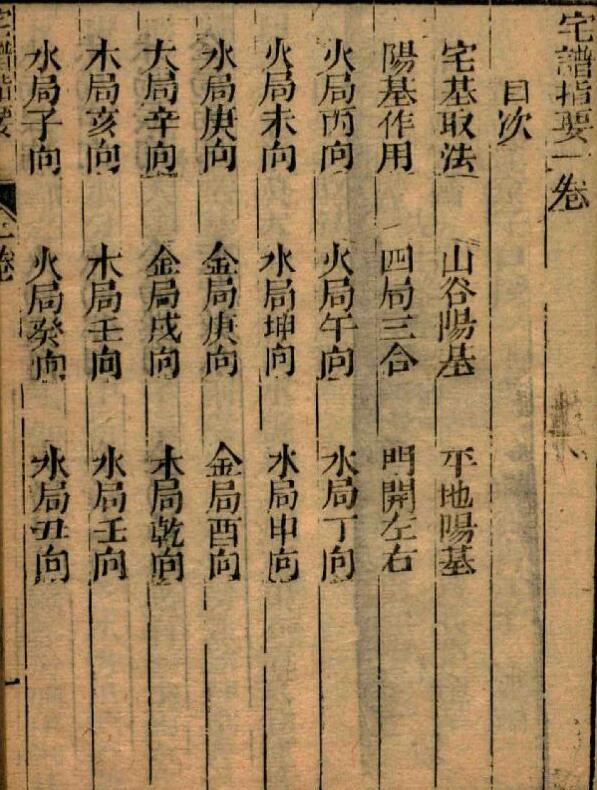 宅譜指要一卷
目次
宅基取法 山谷陽基 平地陽基
陽基作用 四局三合 門開左右
火局丙向 火局午向 水局丁向
火局未向 水局坤向 水局申向
水局庚向 金局庚向 金局酉向
大局辛向 金局戌向 木局乾向
木局亥向 木局壬向 水局壬向
水局子向 火局癸向 水局丑向
宅譜指要